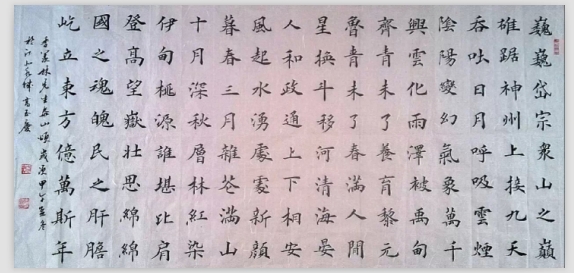 巍巍岱宗衆山之巔
雄踞神州上接九天
吞吐日月呼吸雲煙
陰陽變幻氣象萬千
興雲化雨澤被禹甸
齊青未了養育黎元
魯青未了春滿人間
星換斗移河清海晏
人和政通上下相安
風起水湧處處新顏
暮春三月雜花滿山
十月深秋層林紅染
伊甸桃源誰堪比肩
登高望嶽壯思綿綿
國之魂魄民之肝膽
屹立東方億萬斯年
季羨林先生泰山頌歲次甲午夏月
於江